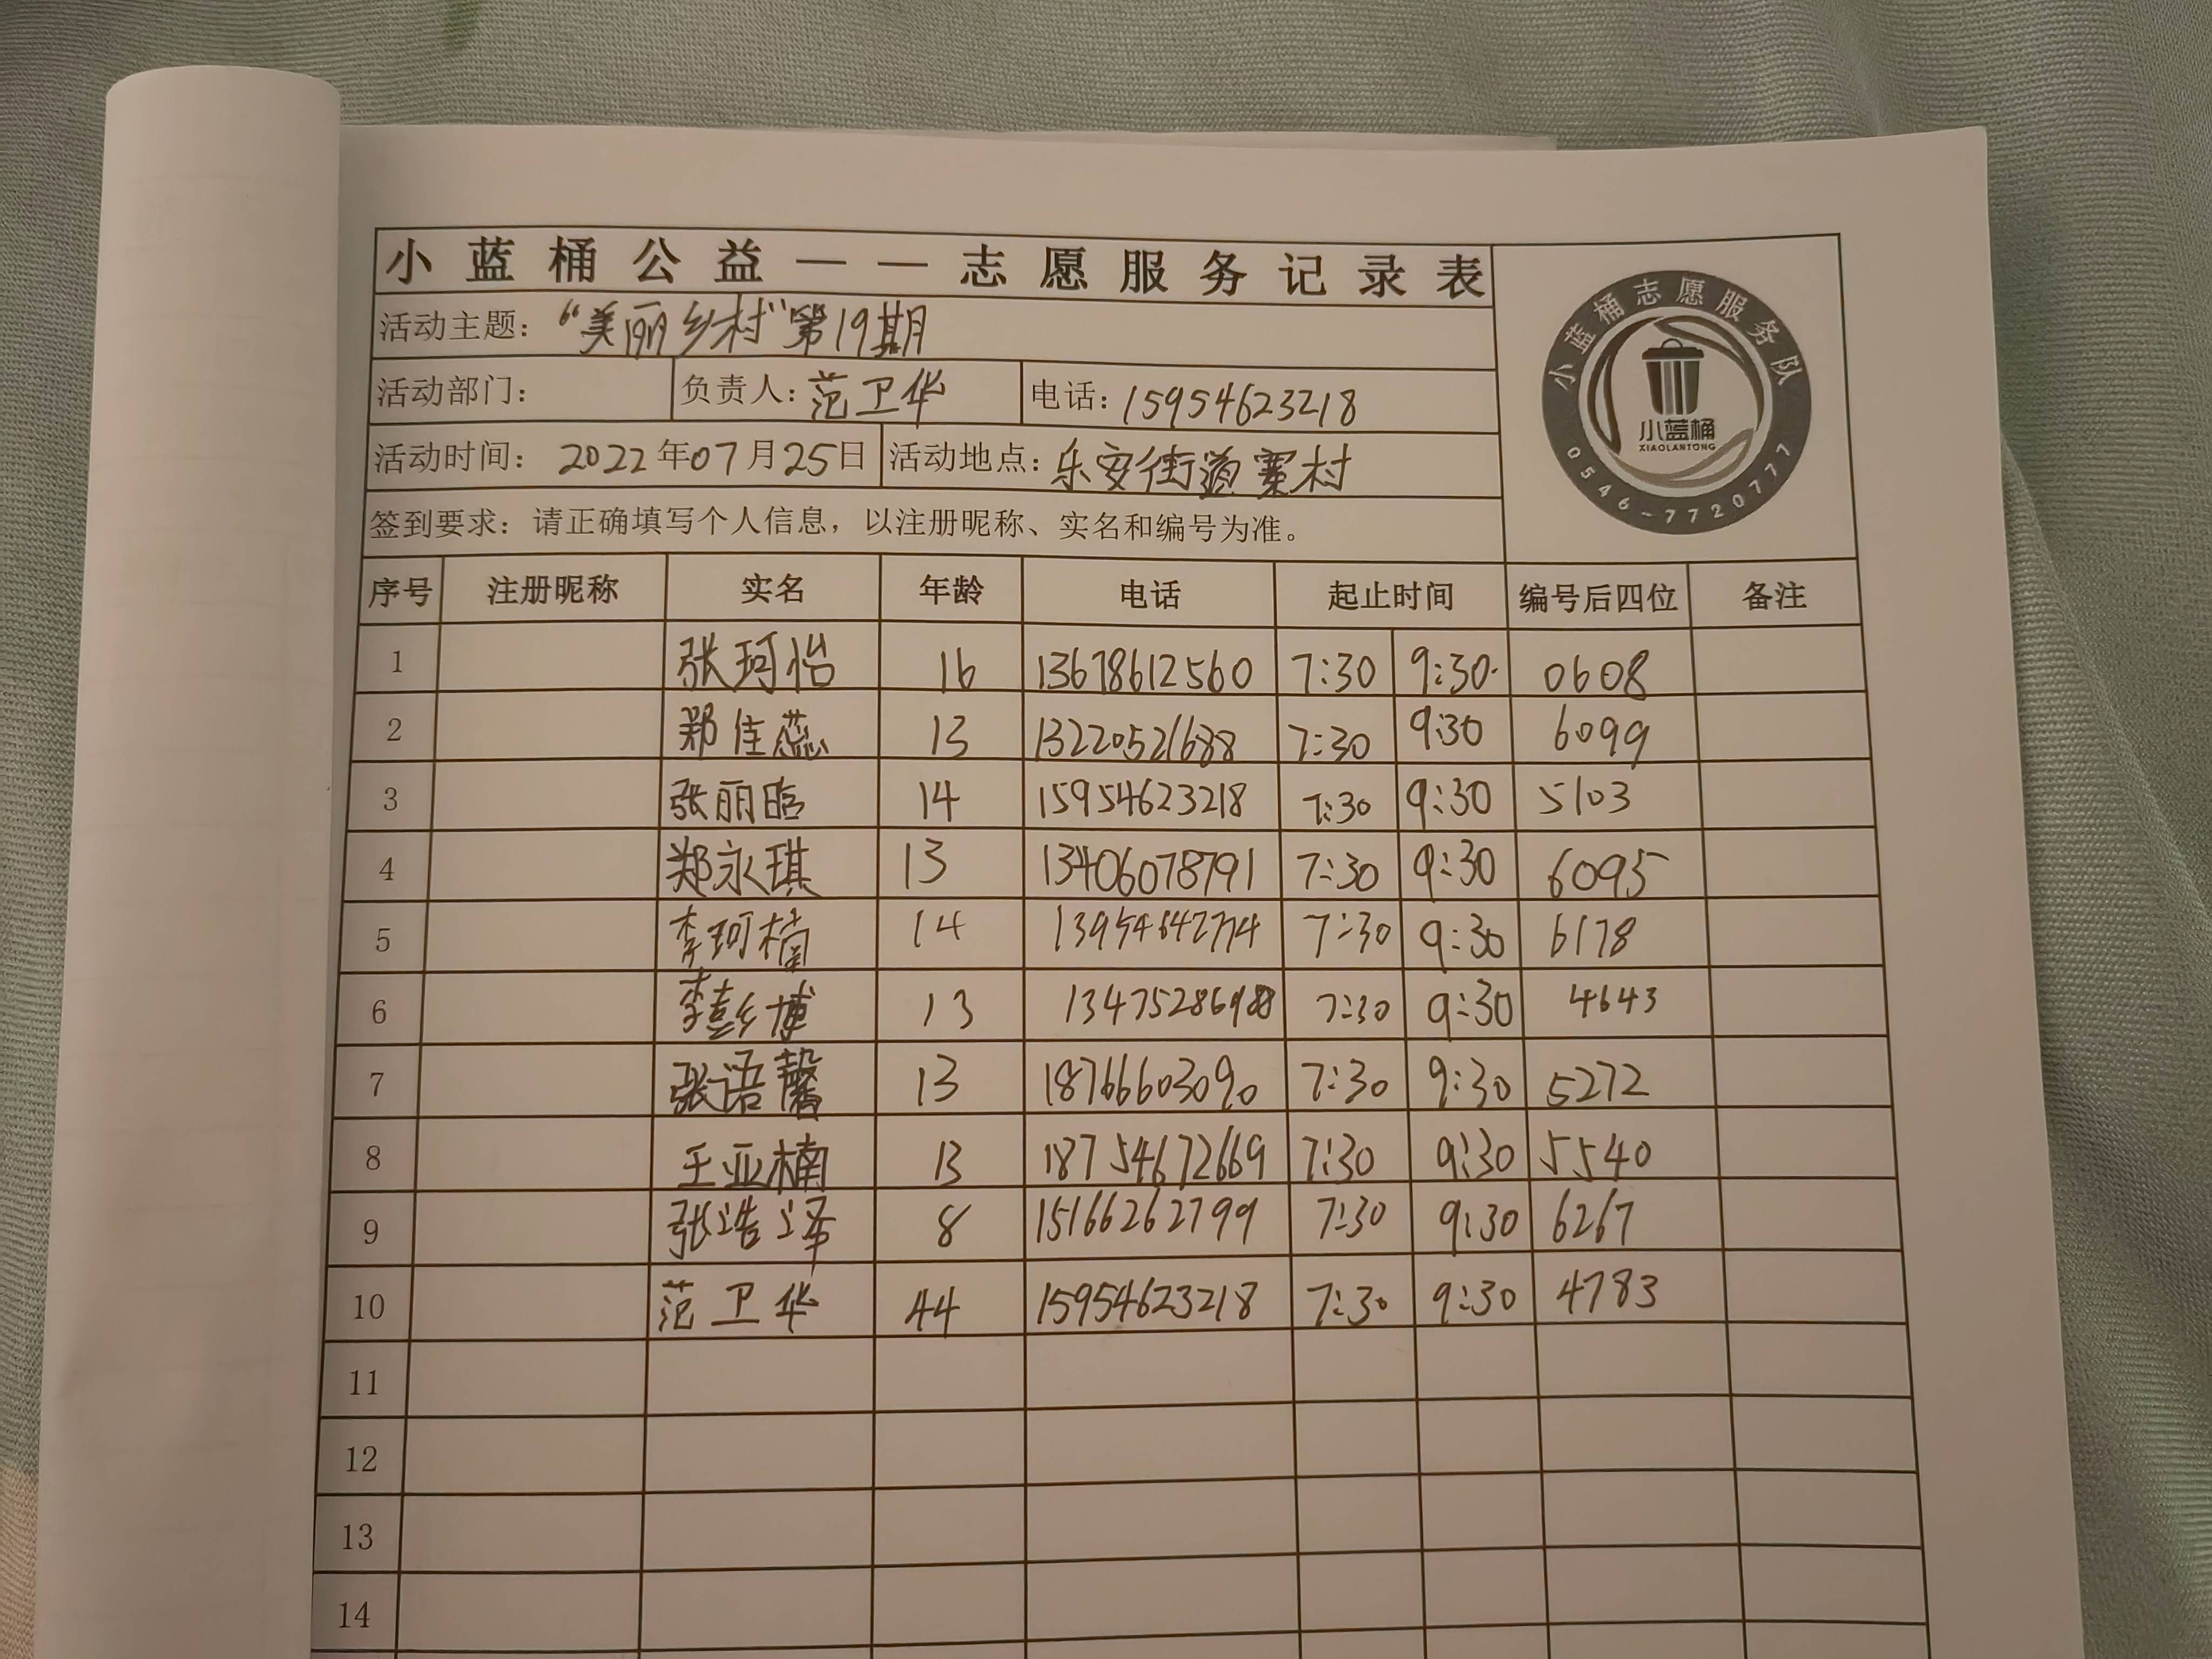 小蓝桶公益——志愿服务记录表
活动主题："美丽乡村"第19期
活动部门： 负责人：范卫华 电话：15954623218
活动时间：2022年07月25日 活动地点：乐安街道寨村
签到要求：请正确填写个人信息，以注册昵称、实名和编号为准。
小蓝桶志愿服务队
小蓝桶
XIAOLANTONG
0546-7720777
序号 注册昵称 实名 年龄 电话 起止时间 编号后四位 备注
1 张珂怡 16 13678612560 7:30 9:30 0608
2 郑佳蕊 13 13220521688 7:30 9:30 6099
3 张丽晗 14 15954623218 7:30 9:30 5103
4 郑永琪 13 13406078791 7:30 9:30 6095
5 李珂楠 14 13954642774 7:30 9:30 6178
6 李彭博 13 7:30 9:30 4643
7 张语馨 13 18766603090 7:30 9:30 5272
8 王亚楠 13 18754672669 7:30 9:30 5540
9 张浩泽 8 15166262799 7:30 9:30 6267
10 范卫华 44 15954623218 7:30 9:30 4783
11
12
13
14